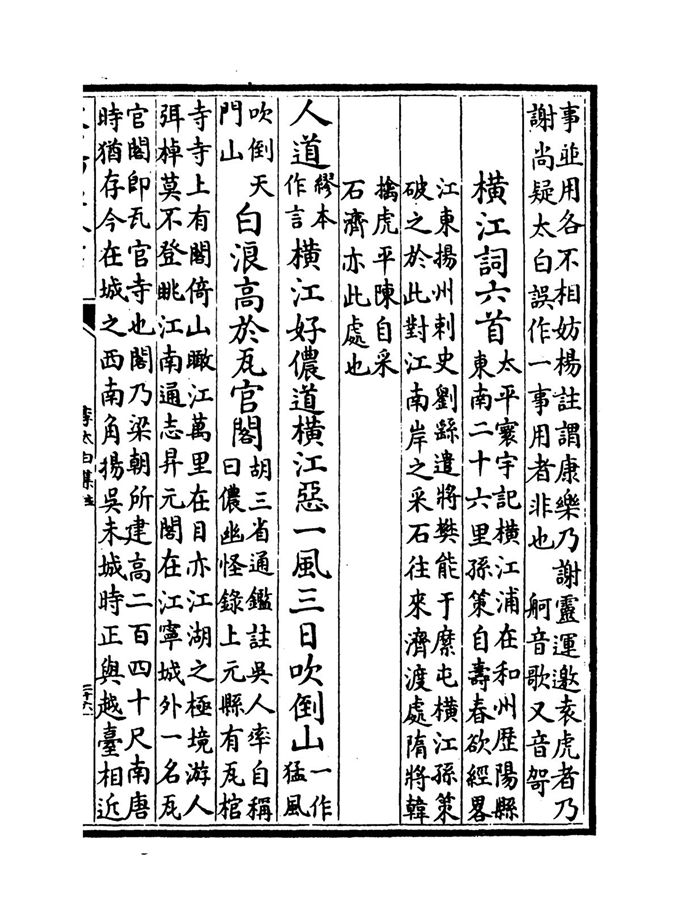 事並用各不相妨楊註謂康樂乃謝靈運邀袁虎者乃
謝尚疑太白誤作一事用者非也　舸音歌又音哿
橫江詞六首
太平寰宇記橫江浦在和州歷陽縣
東南二十六里孫策自壽春欲經畧
江東揚州刺史劉繇遣將樊能于糜屯橫江孫策
破之於此對江南岸之采石往來濟渡處隋將韓
擒虎平陳自采
石濟亦此處也
人道
繆本
作言
橫江好儂道橫江惡一風三日吹倒山
一作
猛風
吹倒天
門山
白浪高於瓦官閣
胡三省通鑑註吳人率自稱
曰儂幽怪錄上元縣有瓦棺
寺寺上有閣倚山瞰江萬里在目亦江湖之極境游人
弭棹莫不登眺江南通志昇元閣在江寧城外一名瓦
官閣即瓦官寺也閣乃梁朝所建高二百四十尺南唐
時猶存今在城之西南角揚吳未城時正與越臺相近
李太白集注